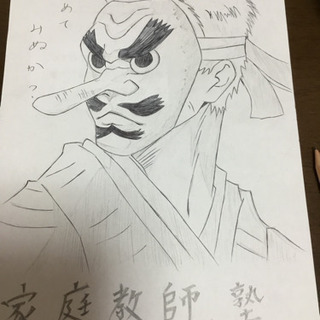 めて
みぬか?
家庭教師 塾